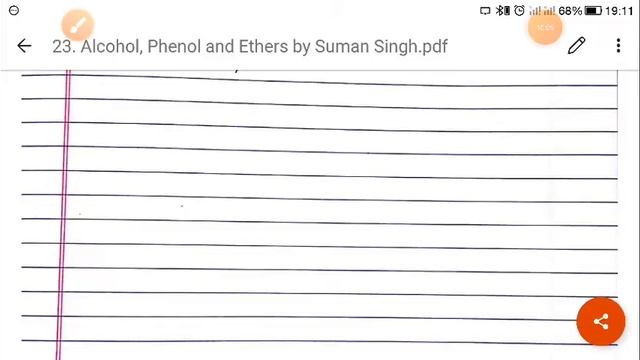 68% 19:11
23. Alcohol, Phenol and Ethers by Suman Singh.pdf